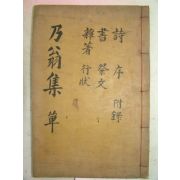 詩 序 附錄
書 祭文
雜著 行狀
乃翁集 單